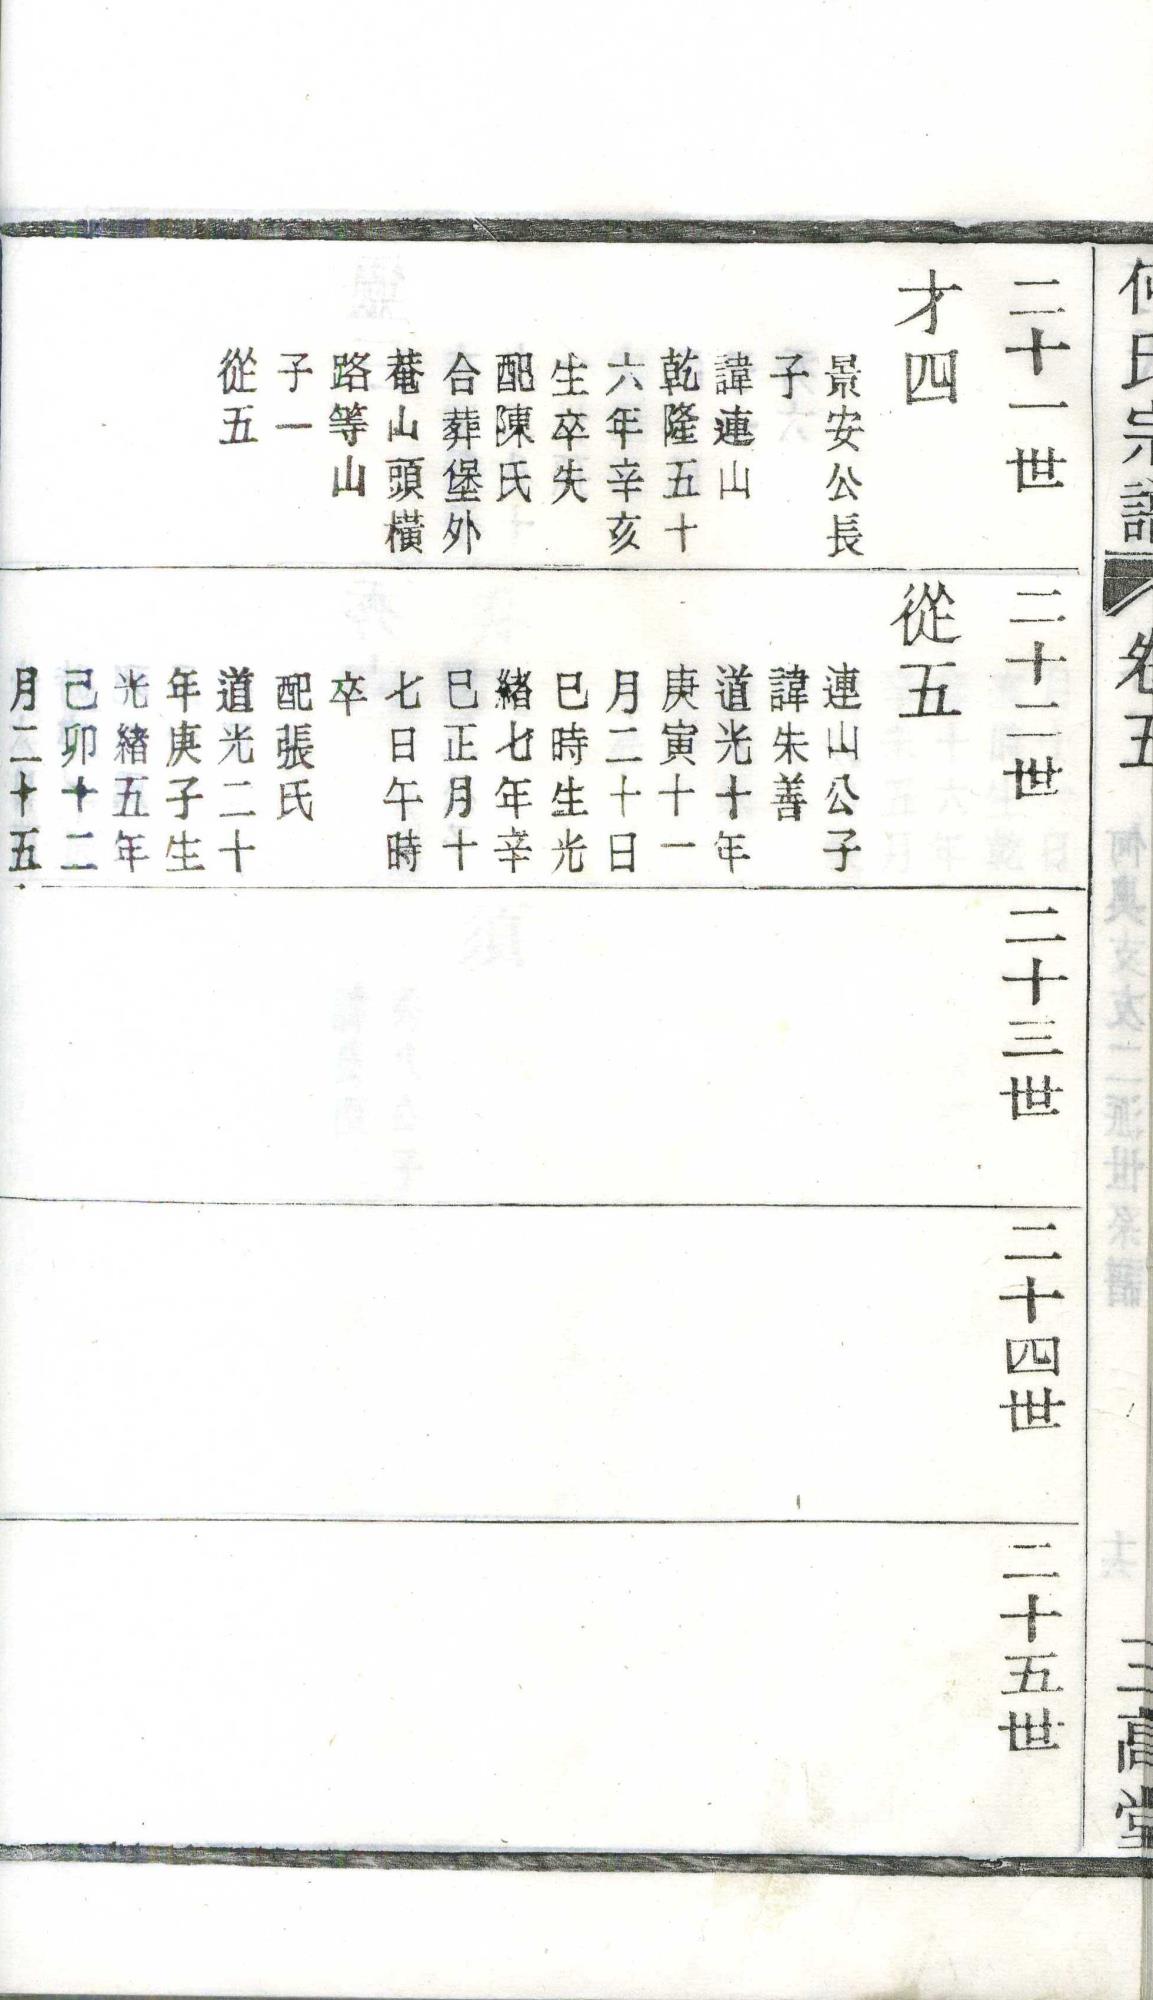 何氏宗譜
卷五
三高堂
二十一世
才四
景安公長
子
諱連山
乾隆五十
六年辛亥
生卒失
配陳氏
合葬堡外
菴山頭橫
路等山
子一
從五
二十二世
從五
連山公子
諱朱善
道光十年
庚寅十一
月二十日
巳時生光
緒七年辛
巳正月十
七日午時
卒
配張氏
道光二十
年庚子生
光緒五年
己卯十二
月二十五
二十三世
二十四世
二十五世